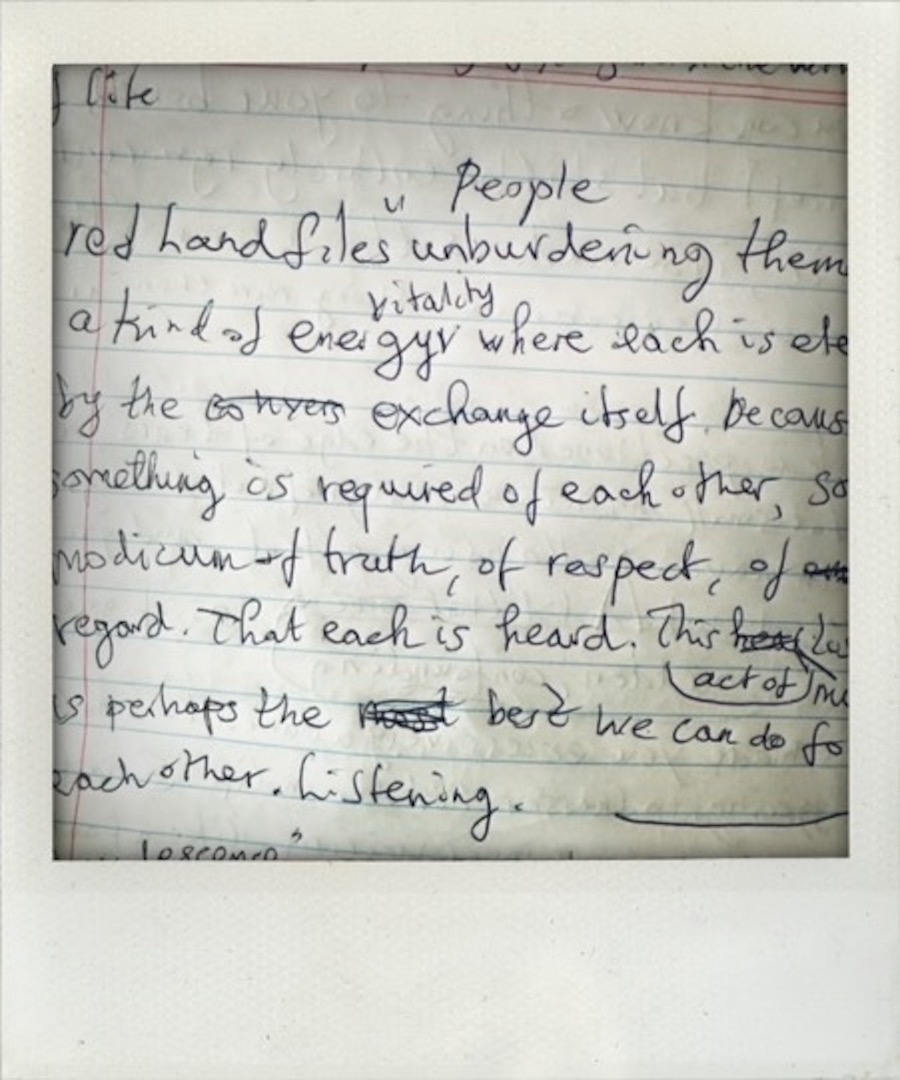 life
People
red hand files unburdening them
vitality
a kind of energy where each is ete
by the convers exchange itself. Becaus
something is required of each other, so
modicum of truth, of respect, of
regard. That each is heard. This
act of
is perhaps the most best we can do fo
each other. Listening.